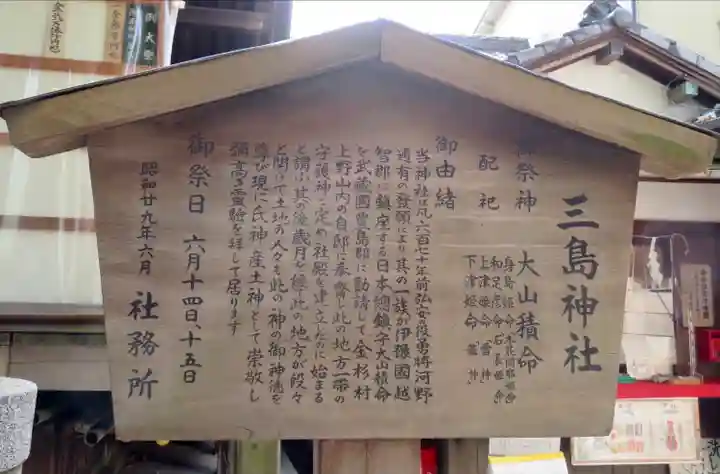 三島神社
御祭神　大山積命
配祀
身島姫命　木花開耶姫命
和足彦命　石長姫命
上津姫命　雷神
下津姫命　龍神
御由緒
当神社は凡六百七十年前弘安役勇将河野
通有の發願により其の一族が伊豫國越
智郡に鎮座する日本總鎮守大山積命
を武蔵國豊島郡に勧請して金杉村
上野山内の自邸に奉齋し此の地方一帯の
守護神と定め社殿を建立したのに始まる
と謂う其の後歳月を經此の地方が段々
と開けて土地の人々も此の神の御神徳を
尊び現に氏神、産土神として崇敬し
彌高き霊驗を拝して居ります
御祭日　六月十四日、十五日
昭和廿九年六月　社務所